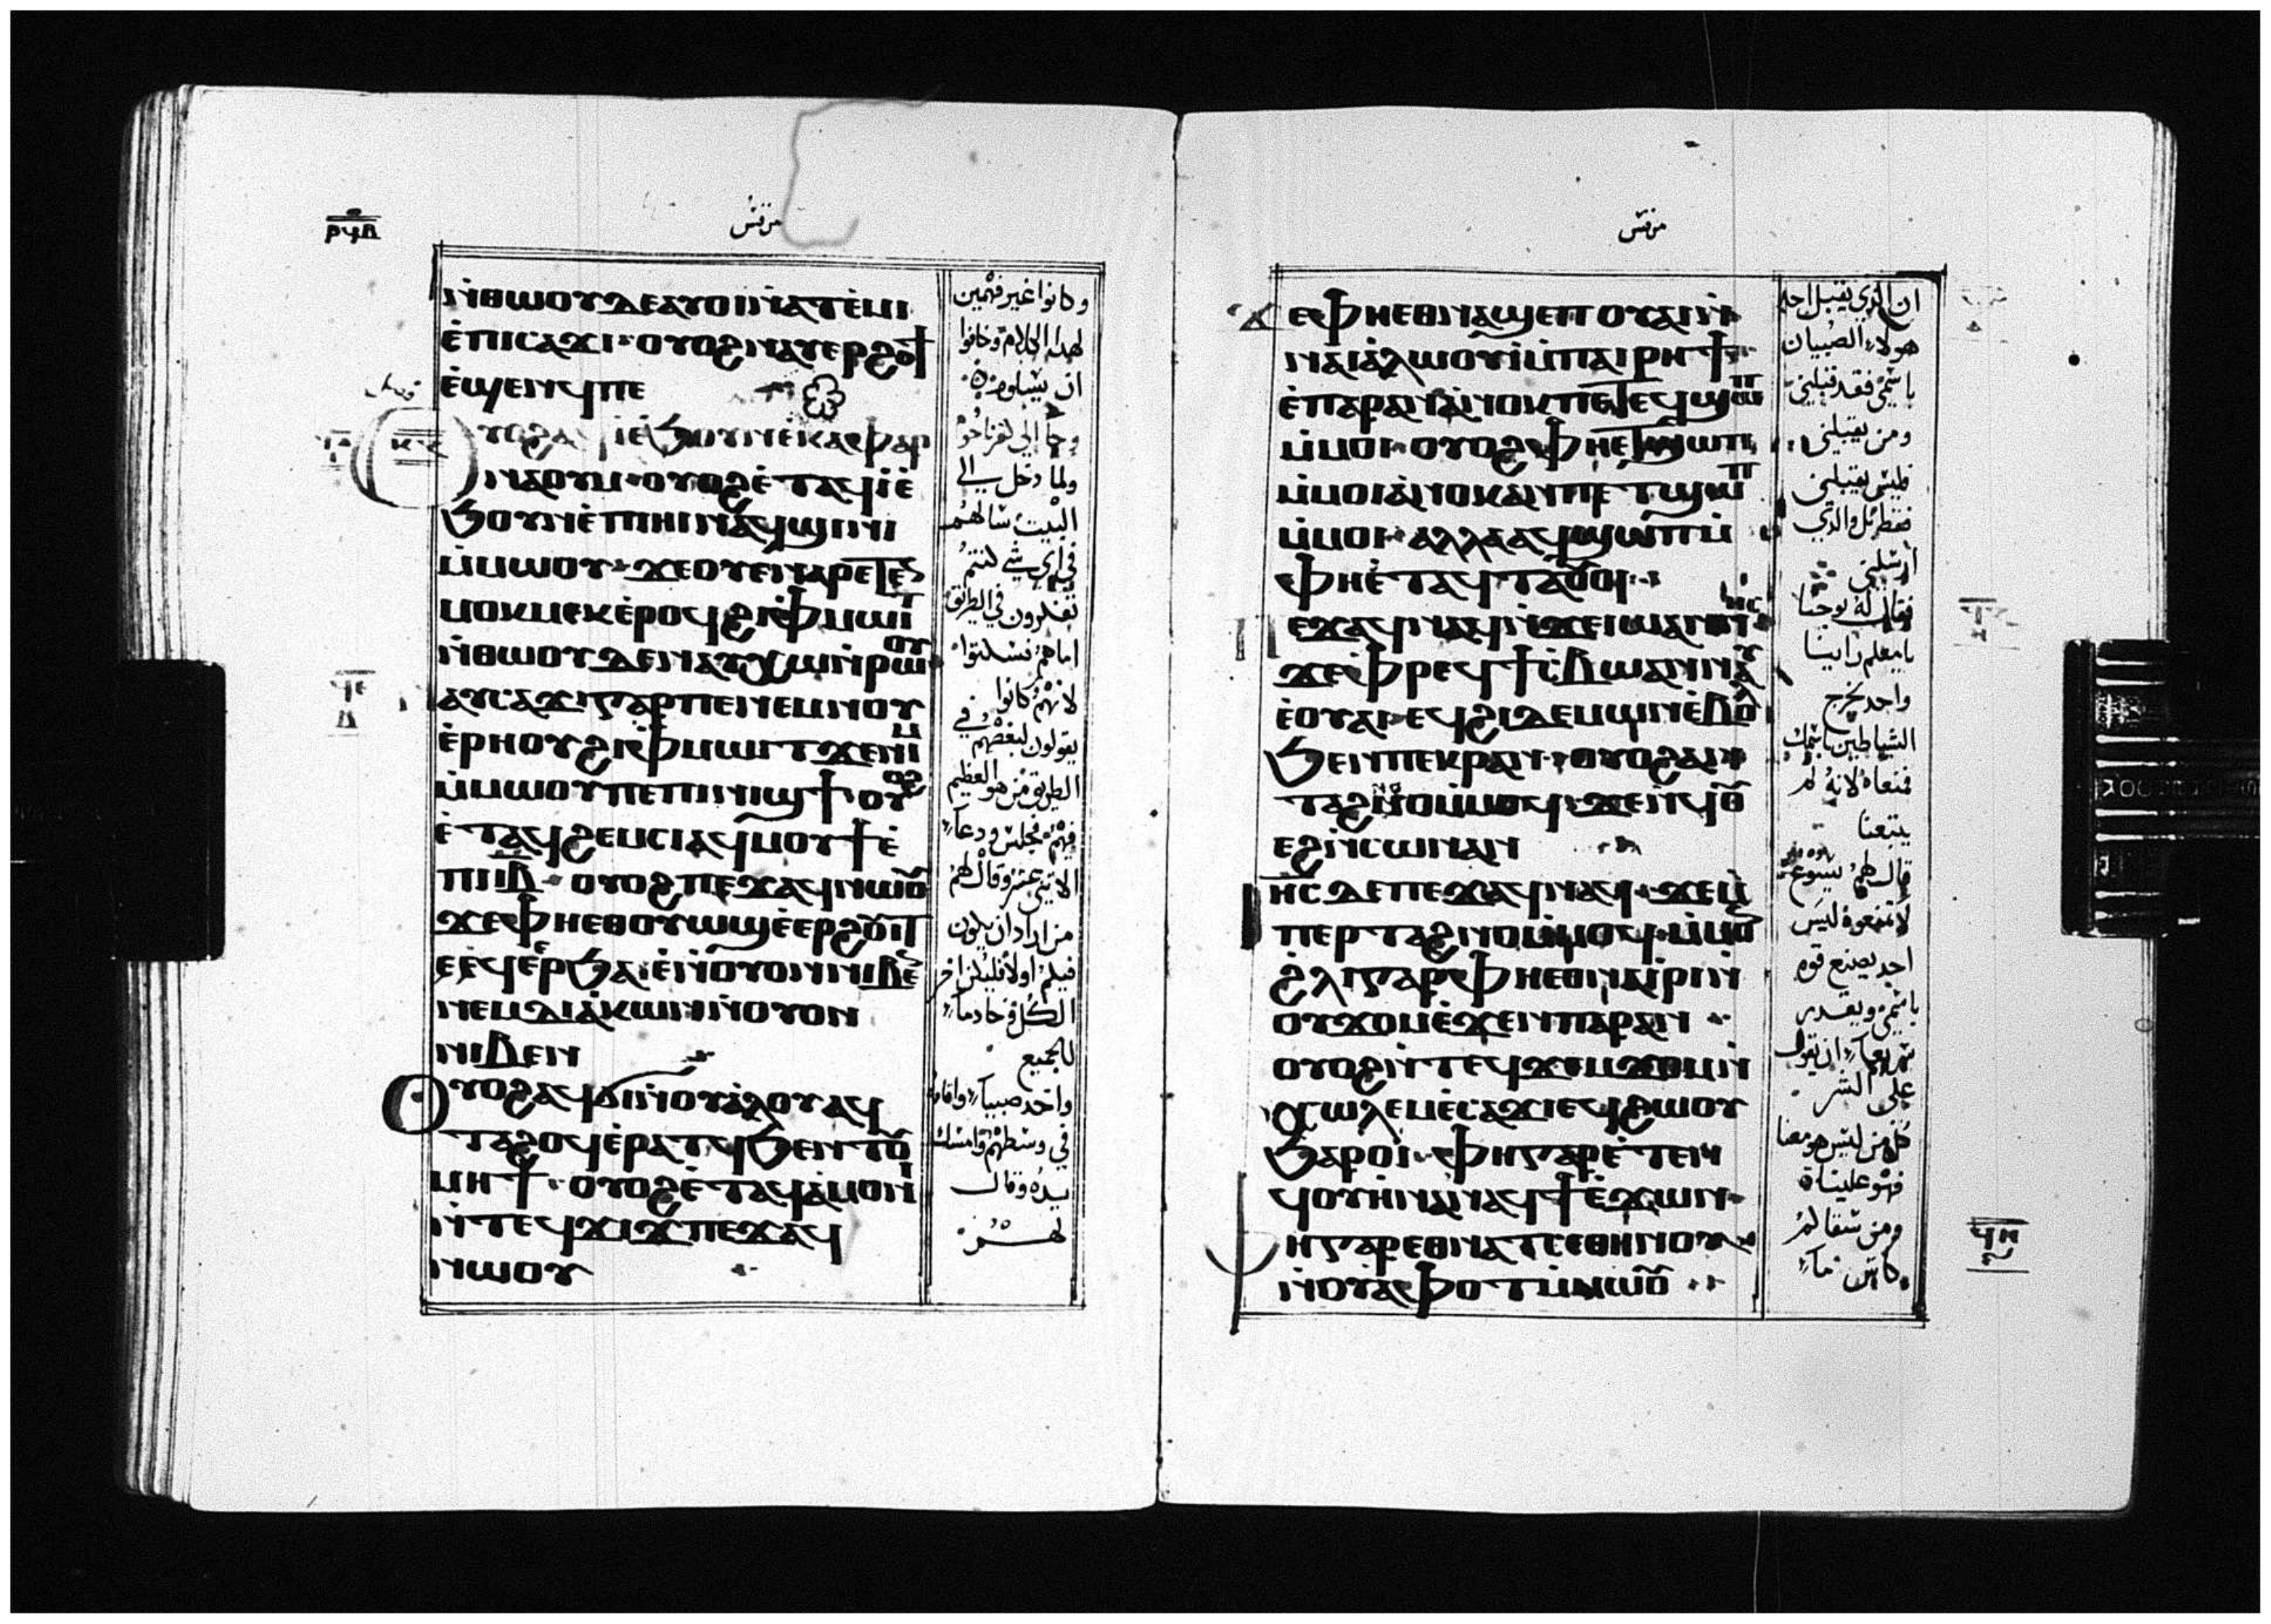 ⲣϥⲃ
مرقس
ⲛ̀ⲑⲱⲟⲩⲇⲉⲁⲩⲟⲓⲛ̀ⲁⲧⲉ̀ⲙⲓ
ⲉ̀ⲡⲓⲥⲁϫⲓ· ⲟⲩⲟϩⲛⲁⲩⲉⲣϩⲟϯ
ⲉ̀ϣⲉⲛϥⲡⲉ
ⲩⲟϩⲁϥⲓ̀ⲉ̀ϧⲟⲩⲛⲉ̀ⲕⲁⲫⲁⲣ
ⲛⲁⲟⲩⲙ· ⲟⲩⲟϩⲉ̀ⲧⲁϥⲓ̀ⲉ̀
ϧⲟⲩⲛⲉ̀ⲡⲓⲏⲓⲛⲁϥϣⲓⲛⲓ
ⲙ̀ⲙⲱⲟⲩ· ϫⲉⲟⲩⲉⲛⲁⲣⲉⲧⲉ
ⲙⲟⲕⲙⲉⲕⲉ̀ⲣⲟϥϩⲓⲫⲙⲱⲓⲧ
ⲛ̀ⲑⲱⲟⲩⲇⲉⲛⲁⲩⲭⲱⲛ̀ⲣⲱⲟⲩ
ⲁⲩⲥⲁϫⲓⲅⲁⲣⲡⲉⲛⲉⲙⲛⲟⲩ
ⲉ̀ⲣⲏⲟⲩϩⲓⲫⲙⲱⲓⲧϫⲉⲛⲓⲙ
ⲙ̀ⲙⲱⲟⲩⲡⲉⲡⲓⲛⲓϣϯ· ⲟⲩⲟϩ
ⲉ̀ⲧⲁϥϩⲉⲙⲥⲓⲁϥⲙⲟⲩϯⲉ̀
ⲡⲓⲓⲃ· ⲟⲩⲟϩⲡⲉϫⲁϥⲛⲱⲟⲩ
ϫⲉⲫⲏⲉⲑⲟⲩⲱϣⲉ̀ⲉⲣϩⲟⲩⲓⲧ
ⲉϥⲉ̀ⲉⲣϧⲁⲉ̀ⲛ̀ⲟⲩⲟⲛⲛⲓⲃⲉ
ⲛⲉⲙⲇⲓⲁ̀ⲕⲱⲛⲛ̀ⲟⲩⲟⲛ
ⲛⲓⲃⲉⲛ
Ⲟⲩⲟϩⲁϥϭⲓⲛ̀ⲟⲩⲁ̀ⲗⲟⲩⲁϥ
ⲧⲁϩⲟϥⲉ̀ⲣⲁⲧϥϧⲉⲛⲧⲟⲩ
ⲙⲏϯ· ⲟⲩⲟϩⲉ̀ⲧⲁϥⲁ̀ⲙⲟⲛⲓ
ⲛ̀ⲧⲉϥϫⲓϫⲡⲉϫⲁϥ
ⲛⲱⲟⲩ
وكانوا غير فهمين
لهذا الكلام وخافوا
ان يسلوه
وجا الي كفرناحوم
ولما دخل الي
البيت سالهم
في اي شي كنتم
تفكرون في الطريق
اما هم فسكتوا
لانهم كانوا
يقولون لبعضهم في
الطريق من هو العظيم
فيهم فجلس ودعا
الاثني عشر وقال لهم
من اراد ان يكون
فيكم اولا فليكن اخر
الكل وخادما
للجميع
واخذ صبيا واقامه
في وسطهم وامسك
بيده وقال
لهم
مرقس
ϫⲉⲫⲏⲉⲑⲛⲁϣⲉⲡⲟⲩⲁⲓⲛ̀
ⲛⲁⲓⲁ̀ⲗⲱⲟⲩⲓ̀ⲙ̀ⲡⲁⲓⲣⲏϯ
ⲉ̀ⲡⲁⲣⲁⲛⲁ̀ⲛⲟⲕⲡⲉⲧⲉϥϣⲱⲡ
ⲙ̀ⲙⲟⲓ· ⲟⲩⲟϩⲫⲏⲉⲧϣⲱⲡ
ⲙ̀ⲙⲟⲓⲁ̀ⲛⲟⲕⲁⲛⲡⲉⲧϣⲱⲡ
ⲙ̀ⲙⲟⲓ· ⲁⲗⲗⲁⲁϥϣⲱⲡⲙ̀
ⲫⲏⲉ̀ⲧⲁϥⲧⲁⲟⲩⲟⲓ
ⲡⲉϫⲁϥⲛⲁϥⲛ̀ϫⲉⲓⲱⲁⲛⲛⲏⲥ
ϫⲉⲫⲣⲉϥϯⲥⲃⲱⲁⲛⲛⲁⲩ
ⲉ̀ⲟⲩⲁⲓ· ⲉϥϩⲓⲇⲉⲙⲱⲛⲉ̀ⲃⲟⲗ
ϧⲉⲛⲡⲉⲕⲣⲁⲛ· ⲟⲩⲟϩⲁⲛ
ⲧⲁϩⲛⲟⲙ̀ⲙⲟϥ· ϫⲉⲛϥⲟⲩ
ⲉϩⲛ̀ⲥⲱⲛⲁⲛ
ⲓⲏⲥⲇⲉⲡⲉϫⲁϥⲛⲁϥ· ϫⲉⲙ̀
ⲡⲉⲣⲧⲁϩⲛⲟⲙ̀ⲙⲟϥ· ⲙ̀ⲙⲟⲛ
ϩ̀ⲗⲓⲅⲁⲣⲫⲏⲉⲑⲛⲁⲓ̀ⲣⲓⲛ̀
ⲟⲩϫⲟⲙⲉ̀ϫⲉⲛⲡⲁⲣⲁⲛ
ⲟⲩⲟϩⲛ̀ⲧⲉϥϫⲉⲙϫⲟⲙⲛ̀
ⲭⲱⲗⲉⲙⲉ̀ⲥⲁϫⲓⲉϥϩⲱⲟⲩ
ϧⲁⲣⲟⲓ· ⲫⲏⲅⲁⲣⲉ̀ⲧⲉⲛ
ϥⲟⲩⲃⲏⲛⲁⲛⲁϥϯⲉ̀ϫⲱⲛ
ⲫⲏⲅⲁⲣⲉⲑⲛⲁⲧⲥⲉⲑⲏⲛⲟⲩ
ⲛ̀ⲟⲩⲁ̀ⲫⲟⲧⲙ̀ⲙⲱⲟⲩ
ان الذي يقبل احد
هولاء الصبيان
باسمي فقد قبلني
ومن يقبلني
فليس يقبلني
فقط بل والذي
ارسلني
فقال له يوحنا
يا معلم راينا
واحد يخرج
الشياطين باسمك
فمنعناه لانه لم
يتبعنا
قال لهم يسوع
لا تمنعوه ليس
احد يصنع قوه
باسمي ويقدر
سريعا ان يقول
علي الشر
كل من ليس هو معنا
فهو علينا
ومن سقاكم
كاس ما
ϥⲏ